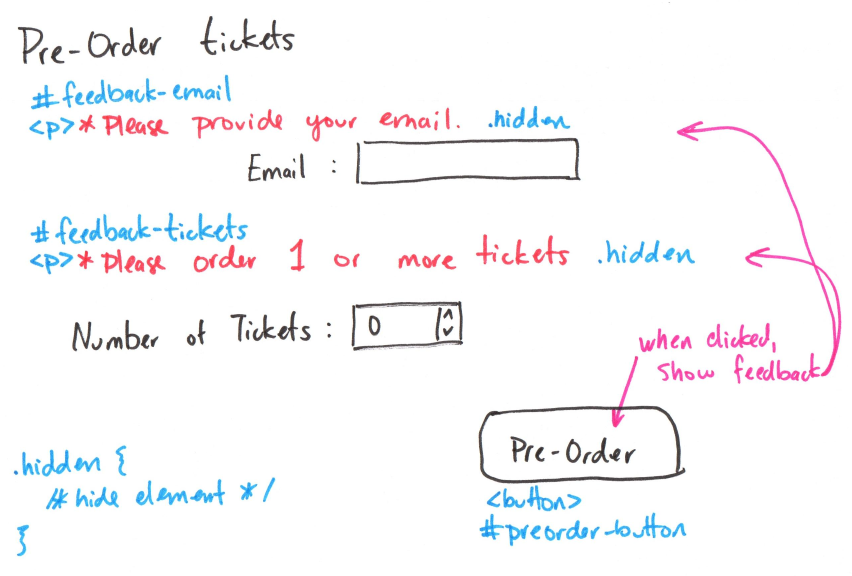 Pre-Order tickets
#feedback-email
<p>* Please provide your email. .hidden
Email :
#feedback-tickets
<p>* Please order 1 or more tickets .hidden
Number of Tickets : 0
when clicked,
show feedback
Pre-Order
<button>
#preorder-button
.hidden {
/* hide element */
}